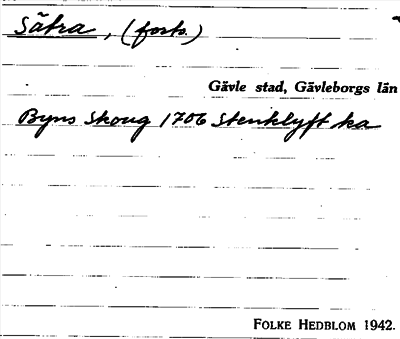 Sätra, (forts.)
Gävle stad, Gävleborgs län
Byns Skoug 1706 Stenklyft ka
FOLKE HEDBLOM 1942.